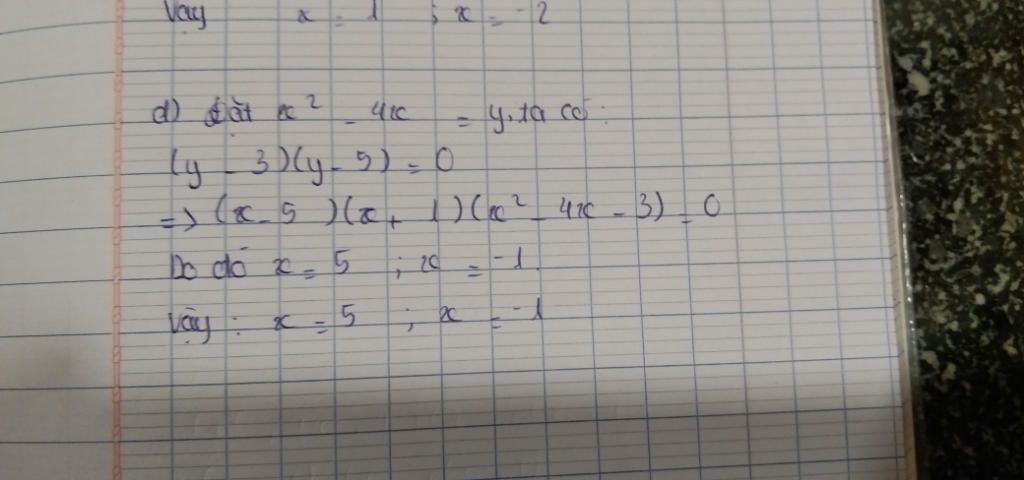 Vậy x = 1 ; x = -2
d) Đặt x² - 4x = y, ta có:
(y - 3)(y - 5) = 0
=> (x - 5)(x + 1)(x² - 4x - 3) = 0
Do đó x = 5 ; x = -1
Vậy : x = 5 ; x = -1